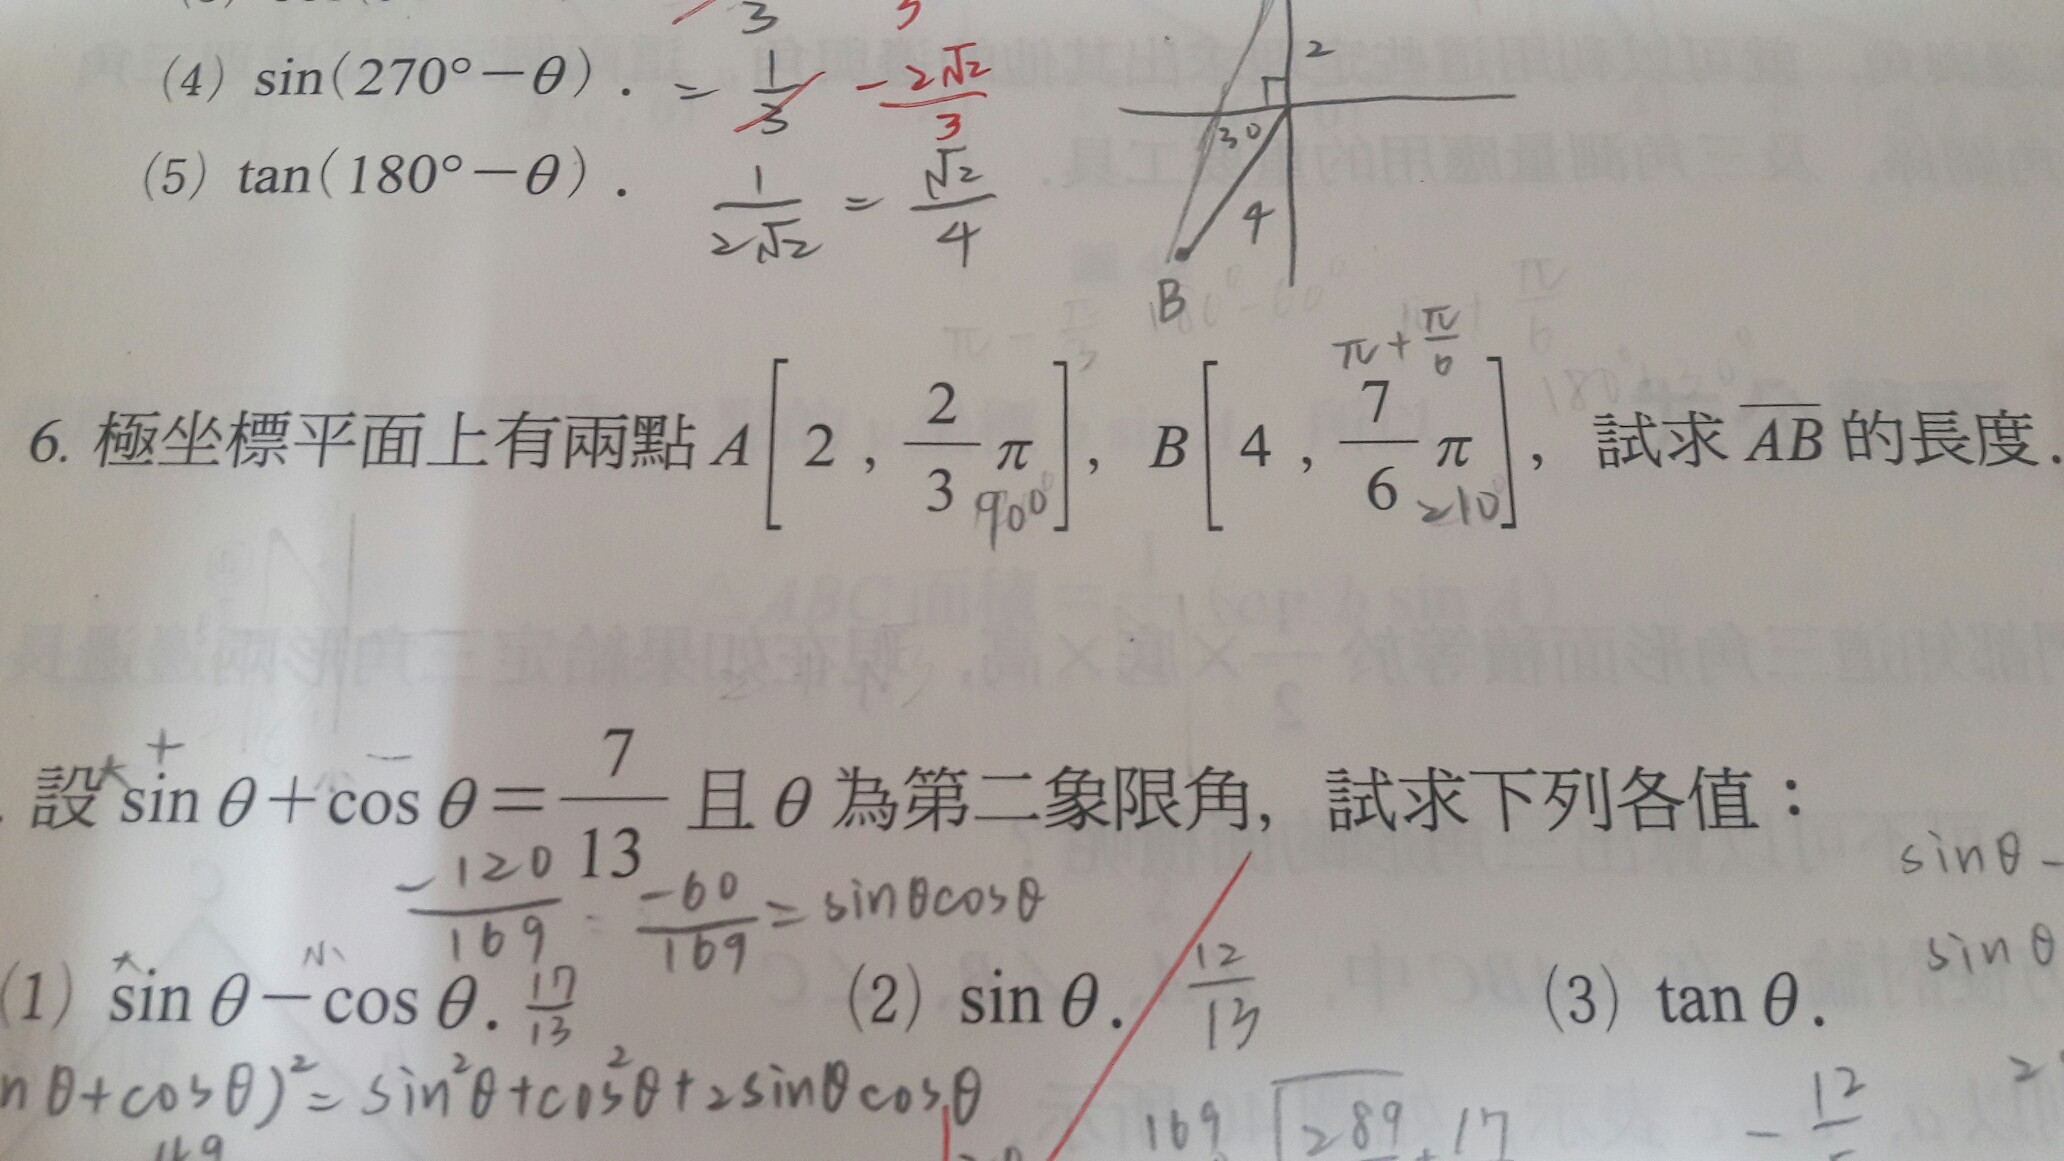 3
(4) sin(270°－θ). = 1/3 -2√2/3
2
(5) tan(180°－θ). 1/2√2 = √2/4
30
4
B
π+π/6
6. 極坐標平面上有兩點 A[2, 2/3 π], B[4, 7/6 π], 試求 AB 的長度.
90° 210°
+ -
設 sin θ＋cos θ＝7/13 且 θ 為第二象限角, 試求下列各值：
-120/169 = -60/169 = sinθcosθ
sinθ-
sinθ
(1) sin θ－cos θ. 17/13 (2) sin θ. 12/13 (3) tan θ.
nθ+cosθ)²= sin²θ+cos²θ+2sinθcosθ
169 289 17 - 12